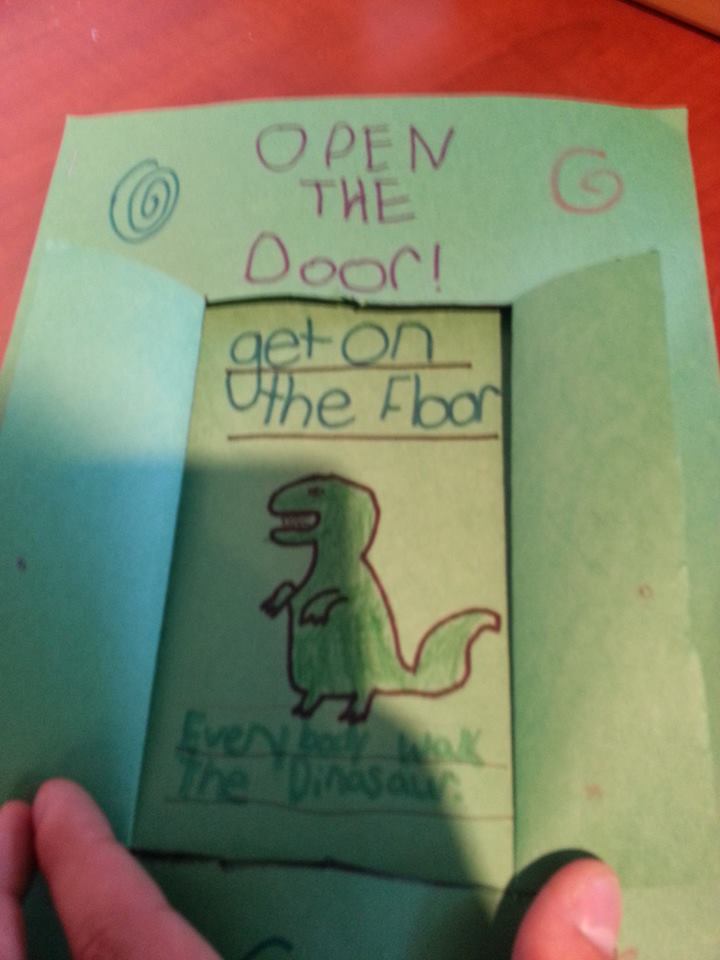 OPEN
THE
Door!
get on
the Floor
Everybody Walk
The Dinosaur.